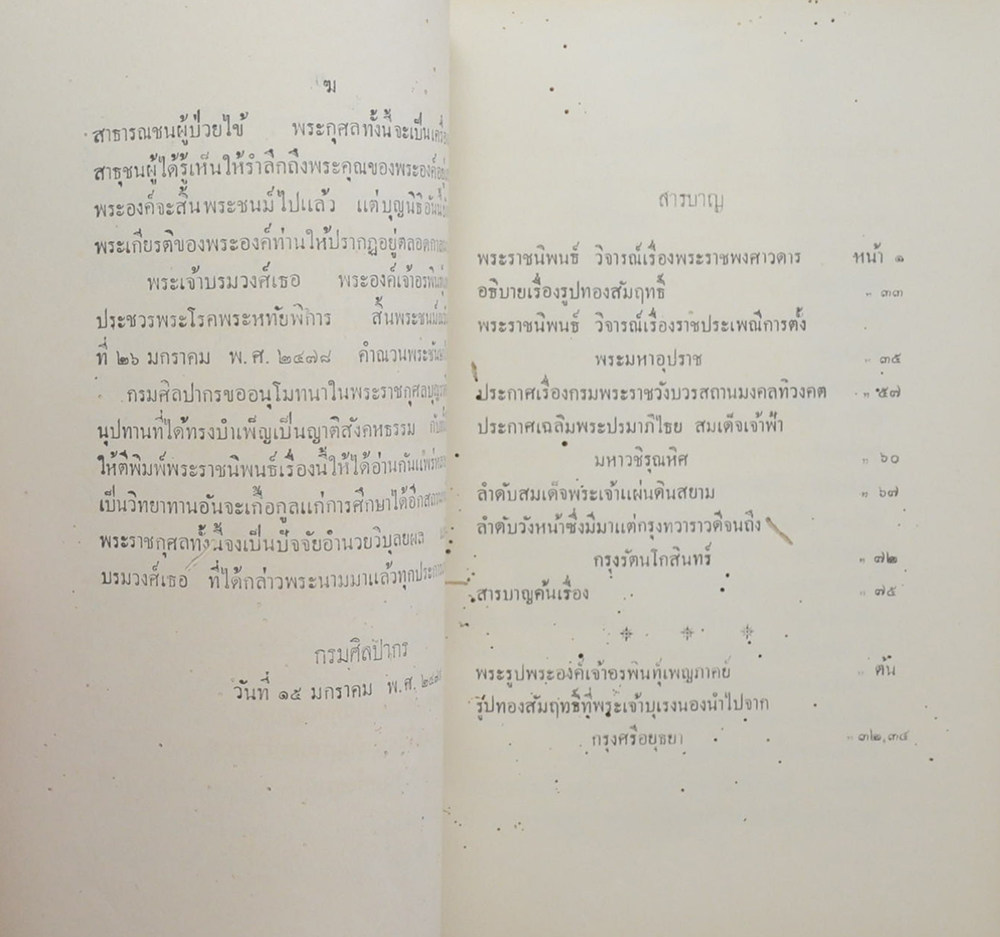 ฆ
สาธารณชนผู้ป่วยไข้ พระกุศลทั้งนี้จะเป็น
สาธุชนผู้ได้รู้เห็นให้รำลึกถึงพระคุณของพระองค์
พระองค์จะสิ้นพระชนม์ไปแล้ว แต่บุญนิธิ
พระเกียรติของพระองค์ท่านให้ปรากฏอยู่ตลอด
พระเจ้าบรมวงศ์เธอ พระองค์เจ้า
ประชวรพระโรคพระหทัยพิการ สิ้นพระชนม์
ที่ ๒๖ มกราคม พ.ศ. ๒๔๗๘ คำณวนพระ
กรมศิลปากรขออนุโมทนาในพระราชกุศล
นุปทานที่ได้ทรงบำเพ็ญเป็นญาติสังคหธรรม
ให้ตีพิมพ์พระราชนิพนธ์เรื่องนี้ให้ได้อ่านกัน
เป็นวิทยาทานอันจะเกื้อกูลแก่การศึกษาได้อีก
พระราชกุศลทั้งนี้จงเป็นปัจจัยอำนวยวิบุลยผล
บรมวงศ์เธอ ที่ได้กล่าวพระนามมาแล้วทุก
กรมศิลปากร
วันที่ ๑๕ มกราคม พ.ศ.
สารบาญ
พระราชนิพนธ์ วิจารณ์เรื่องพระราชพงศาวดาร หน้า ๑
อธิบายเรื่องรูปทองสัมฤทธิ์ " ๓๓
พระราชนิพนธ์ วิจารณ์เรื่องราชประเพณีการตั้ง
พระมหาอุปราช " ๓๕
ประกาศเรื่องกรมพระราชวังบวรสถานมงคลทิวงคต " ๕๗
ประกาศเฉลิมพระปรมาภิไธย สมเด็จเจ้าฟ้า
มหาวชิรุณหิศ " ๖๐
ลำดับสมเด็จพระเจ้าแผ่นดินสยาม " ๖๗
ลำดับวังหน้าซึ่งมีมาแต่กรุงทวาราวดีจนถึง
กรุงรัตนโกสินทร์ " ๗๒
สารบาญค้นเรื่อง " ๗๕
พระรูปพระองค์เจ้าอรพินทุ์เพญภาคย์ " ต้น
รูปทองสัมฤทธิ์ที่พระเจ้าบุเรงนองนำไปจาก
กรุงศรีอยุธยา " ๓๒,๓๔